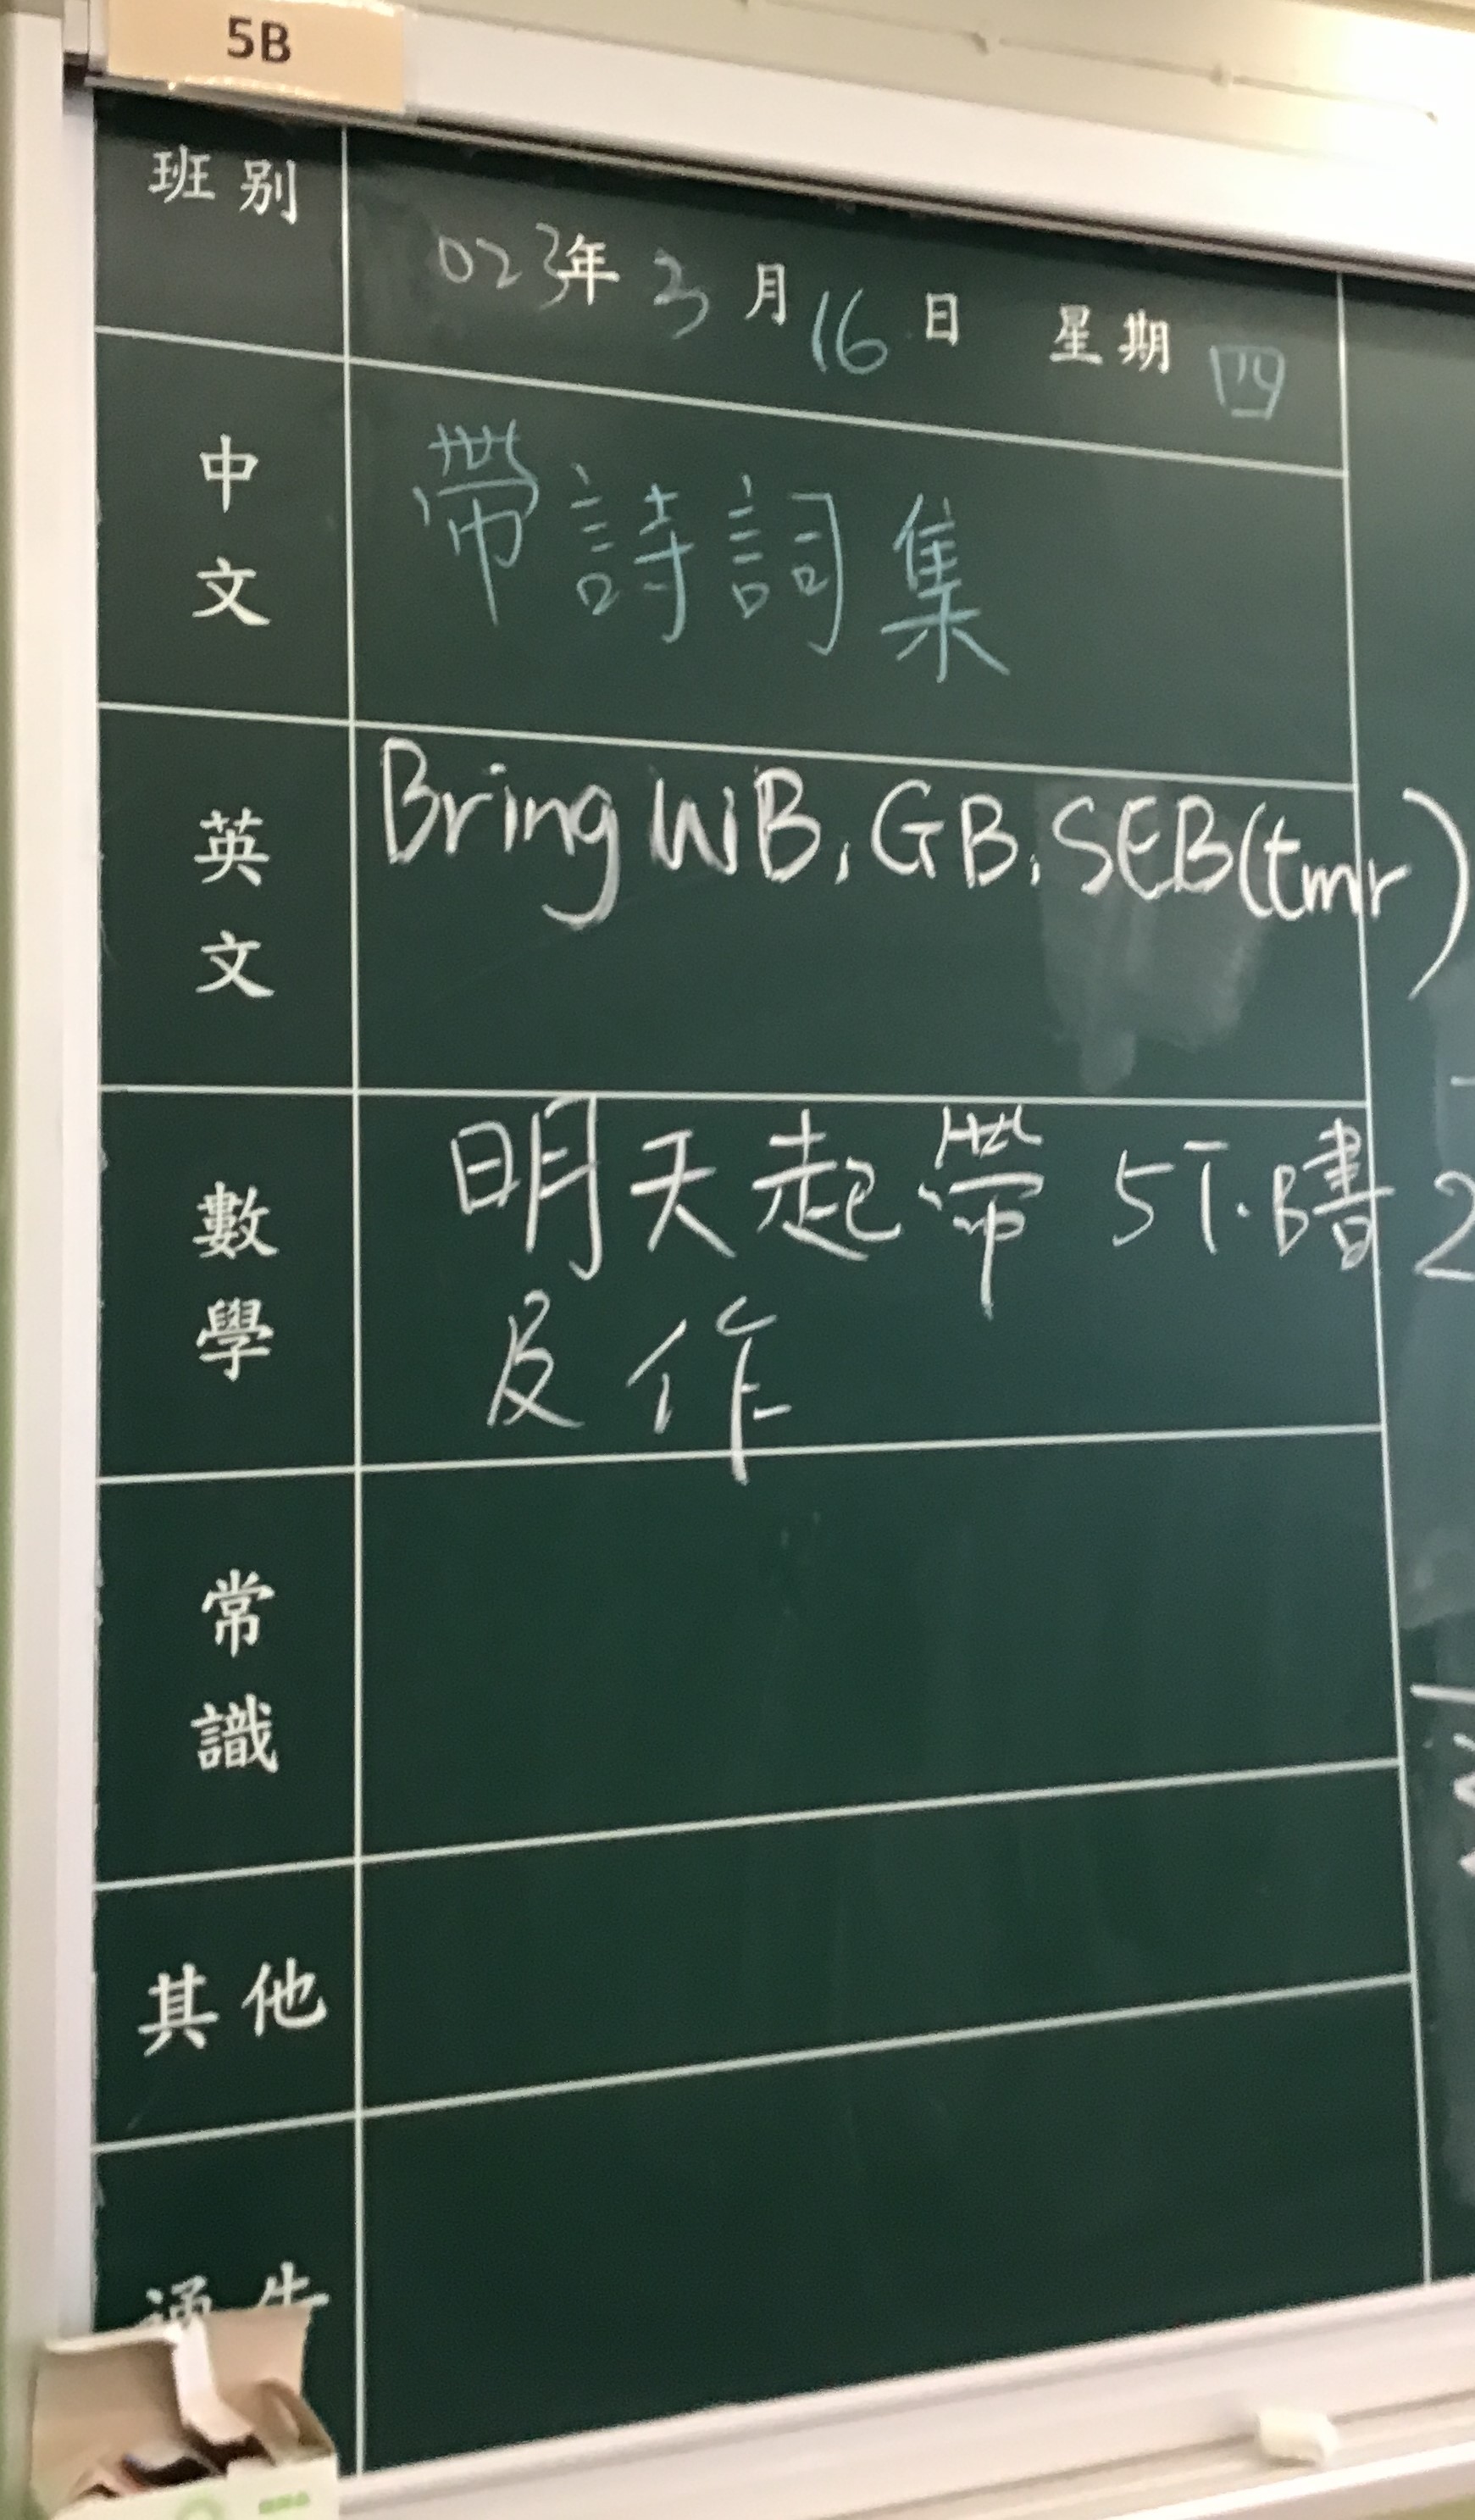 5B
班別
023年3月16日 星期四
中文
帶詩詞集
英文
Bring WB, GB, SEB(tmr)
數學
明天起帶 5T.B書 2
及作
常識
其他
通告